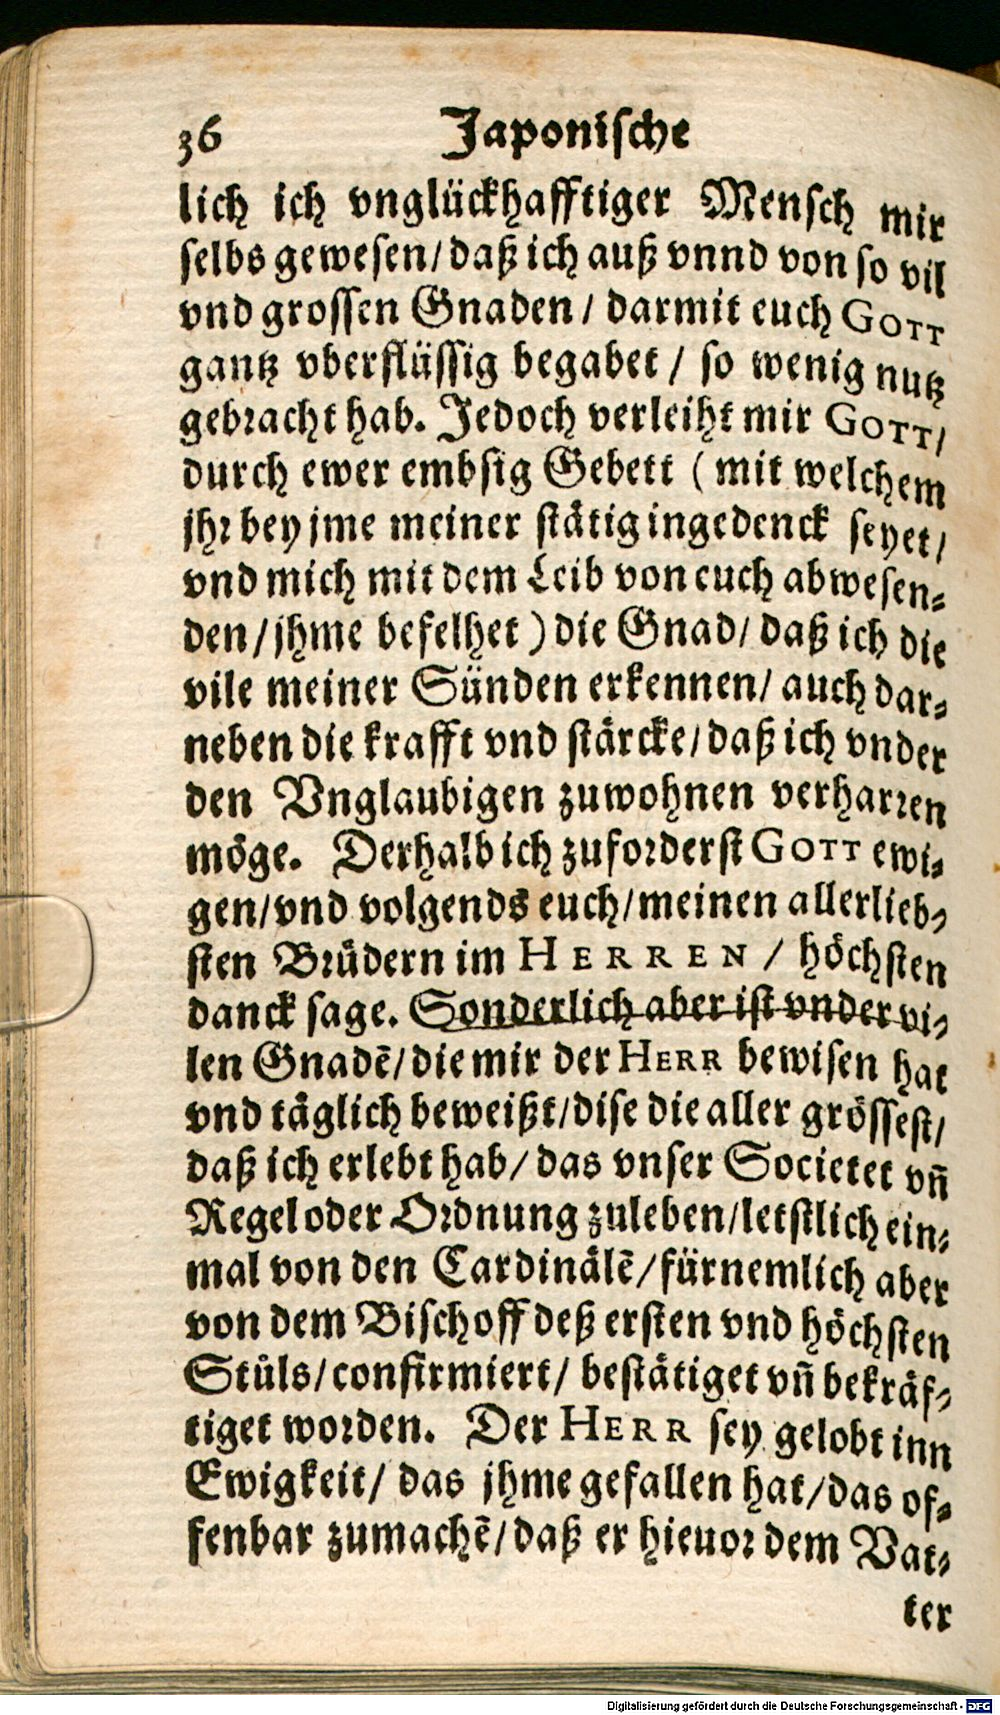 36 Japonische
lich ich vnglückhafftiger Mensch mir
selbs gewesen/ daß ich auß vnnd von so vil
vnd grossen Gnaden / darmit euch GOTT
gantz vberflüssig begabet / so wenig nutz
gebracht hab. Jedoch verleiht mir GOTT/
durch ewer embsig Gebett ( mit welchem
jhr bey jme meiner stätig ingedenck seyet/
vnd mich mit dem Leib von euch abwesen-
den/ jhme befelhet ) die Gnad/ daß ich die
vile meiner Sünden erkennen/ auch dar-
neben die krafft vnd stärcke/ daß ich vnder
den Vnglaubigen zuwohnen verharren
möge. Derhalb ich zuforderst GOTT ewi-
gen/ vnd volgends euch/ meinen allerlieb-
sten Brůdern im HERREN / höchsten
danck sage. Sonderlich aber ist vnder vi-
len Gnadē/ die mir der HERR bewisen hat
vnd täglich beweißt/ dise die aller grössest/
daß ich erlebt hab/ das vnser Societet vñ
Regel oder Ordnung zuleben/ letstlich ein-
mal von den Cardinälē/ fürnemlich aber
von dem Bischoff deß ersten vnd höchsten
Stůls/ confirmiert/ bestätiget vñ bekräf-
tiget worden. Der HERR sey gelobt inn
Ewigkeit/ das jhme gefallen hat/ das of-
fenbar zumachē/ daß er hieuor dem Vat-
ter
Digitalisierung gefördert durch die Deutsche Forschungsgemeinschaft - DFG